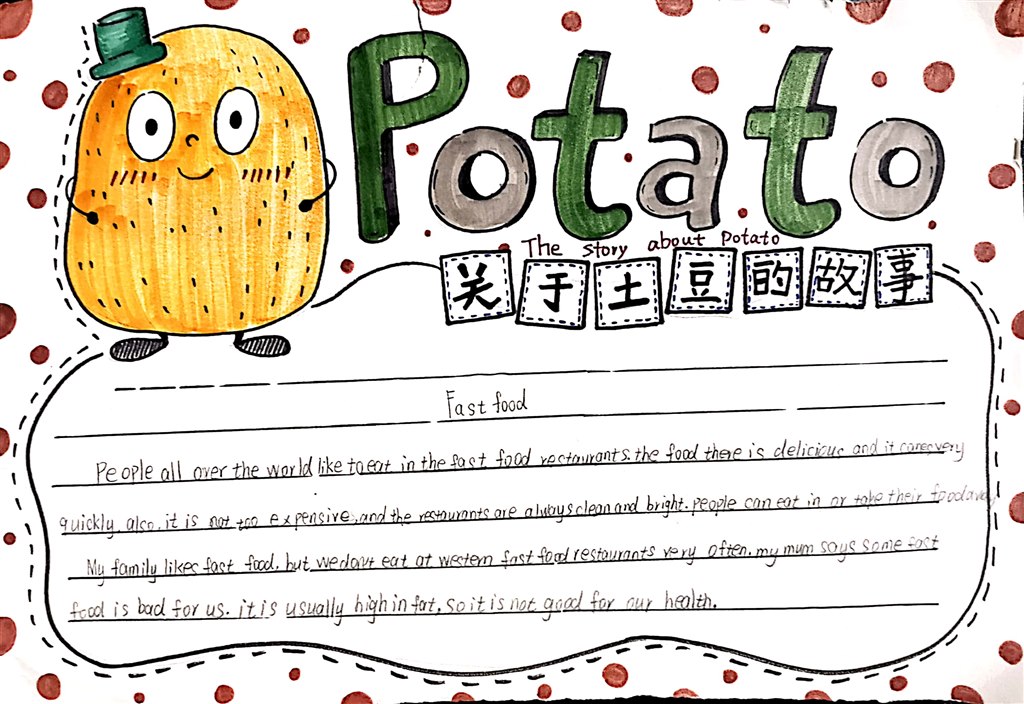 Potato
The story about Potato
关于土豆的故事
Fast food
People all over the world like to eat in the fast food restaurants. the food there is delicious and it comes very
quickly. also. it is not too expensive. and the restaurants are always clean and bright. people can eat in or take their food away
My family likes fast food. but we don't eat at western fast food restaurants very often. my mum says some fast
food is bad for us. it is usually high in fat, so it is not good for our health.